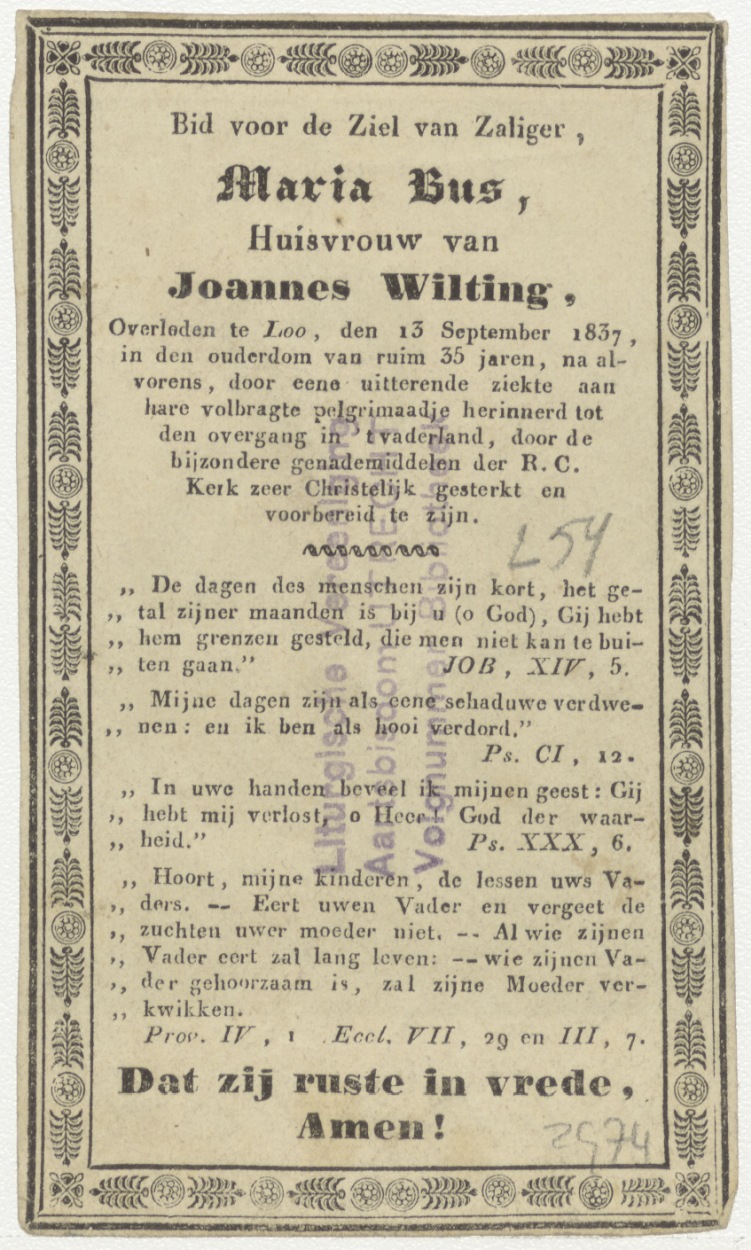 Bid voor de Ziel van Zaliger,
Maria Bus,
Huisvrouw van
Joannes Wilting,
Overleden te Loo, den 13 September 1837,
in den ouderdom van ruim 35 jaren, na al-
vorens, door eene uitterende ziekte aan
hare volbragte pelgrimaadje herinnerd tot
den overgang in 't vaderland, door de
bijzondere genademiddelen der R. C.
Kerk zeer Christelijk gesterkt en
voorbereid te zijn.
L54
„ De dagen des menschen zijn kort, het ge-
„ tal zijner maanden is bij u (o God), Gij hebt
„ hem grenzen gesteld, die men niet kan te bui-
„ ten gaan.” JOB, XIV, 5.
„ Mijne dagen zijn als eene schaduwe verdwe-
„ nen: en ik ben als hooi verdord.”
Ps. CI, 12.
„ In uwe handen beveel ik mijnen geest: Gij
„ hebt mij verlost, o Heer! God der waar-
„ heid.” Ps. XXX, 6.
„ Hoort, mijne kinderen, de lessen uws Va-
„ ders. -- Eert uwen Vader en vergeet de
„ zuchten uwer moeder niet. -- Al wie zijnen
„ Vader eert zal lang leven: -- wie zijnen Va-
„ der gehoorzaam is, zal zijne Moeder ver-
„ kwikken.
Prov. IV, 1 Eccl. VII, 29 en III, 7.
Dat zij ruste in vrede,
Amen!
2974
Liturgische
Aartsbisdom UTRECHT
Volgnummer Bibliotheek